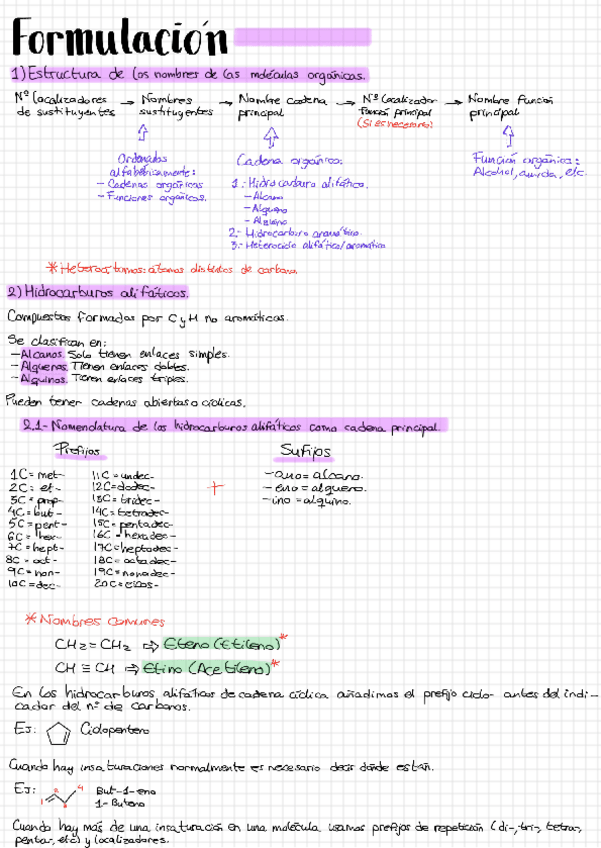 Formulación
1) Estructura de los nombres de las moléculas orgánicas.
Nº localizadores de sustituyentes → Nombres sustituyentes → Nombre cadena principal → Nº localizador función principal (Si es necesario) → Nombre función principal
Ordenados alfabéticamente:
- Cadenas orgánicas
- Funciones orgánicas.
Cadena orgánica:
1.- Hidrocarburo alifático.
- Alcano
- Alqueno
- Alquino
2.- Hidrocarburo aromático.
3.- Heterociclo alifático/aromático
Función orgánica:
Alcohol, amida, etc
* Heteroátomos: átomos distintos de carbono.
2) Hidrocarburos alifáticos.
Compuestos formados por C y H no aromáticos.
Se clasifican en:
- Alcanos. Solo tienen enlaces simples.
- Alquenos. Tienen enlaces dobles.
- Alquinos. Tienen enlaces triples.
Pueden tener cadenas abiertas o cíclicas.
2.1- Nomenclatura de los hidrocarburos alifáticos como cadena principal.
Prefijos
1C = met-
2C = et-
3C = prop-
4C = but-
5C = pent-
6C = hex-
7C = hept-
8C = oct-
9C = non-
10C = dec-
11C = undec-
12C = dodec-
13C = tridec-
14C = tetradec-
15C = pentadec-
16C = hexadec-
17C = heptadec-
18C = octadec-
19C = nonadec-
20C = eicos-
+
Sufijos
- ano = alcano.
- eno = alqueno.
- ino = alquino.
* Nombres comunes
CH2 = CH2 ⇒ Eteno (Etileno)*
CH ≡ CH ⇒ Etino (Acetileno)*
En los hidrocarburos alifáticos de cadena cíclica añadimos el prefijo ciclo- antes del indi-
cador del nº de carbonos.
Ej: Ciclopenteno
Cuando hay insaturaciones normalmente es necesario decir dónde están.
Ej: 1 2 3 4 But-1-eno
1-Buteno
Cuando hay más de una insaturación en una molécula usamos prefijos de repetición (di-, tri-, tetra,
penta, etc) y localizadores.